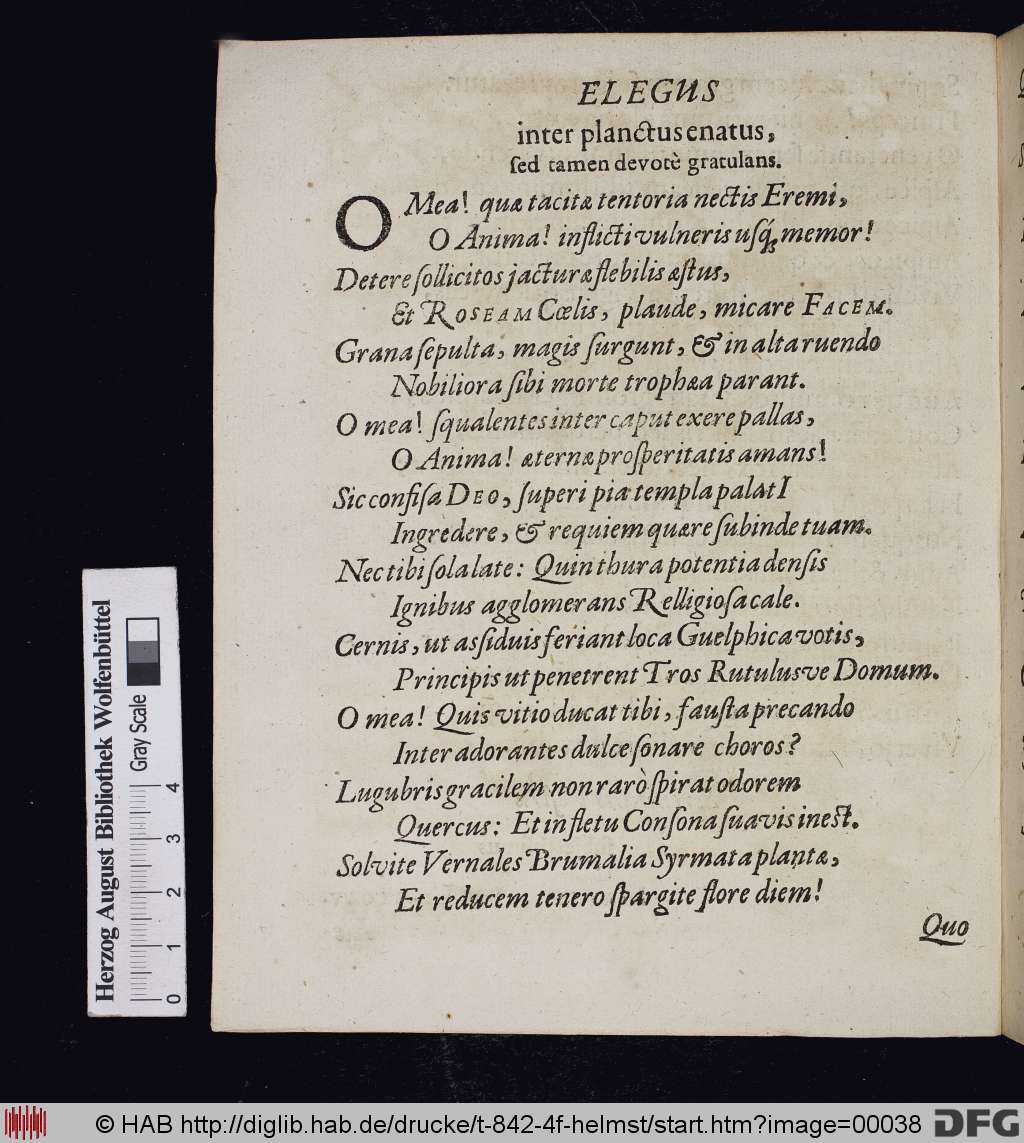 ELEGUS
inter planctus enatus,
ſed tamen devotè gratulans.
O Mea! quæ tacitæ tentoria nectis Eremi,
O Anima! inflicti vulneris uſq́; memor!
Detere ſollicitos jacturæ flebilis æſtus,
Et ROSEAM Cœlis, plaude, micare FACEM.
Grana ſepulta, magis ſurgunt, & in alta ruendo
Nobiliora ſibi morte trophæa parant.
O mea! ſqualentes inter caput exere pallas,
O Anima! æternæ proſperitatis amans!
Sic confiſa DEO, ſuperi pia templa palatI
Ingredere, & requiem quære ſubinde tuam.
Nec tibi ſola late: Quin thura potentia denſis
Ignibus agglomerans Relligioſa cale.
Cernis, ut aſsiduis feriant loca Guelphica votis,
Principis ut penetrent Tros Rutulusve Domum.
O mea! Quis vitio ducat tibi, fauſta precando
Inter adorantes dulce ſonare choros?
Lugubris gracilem non rarò ſpirat odorem
Quercus: Et in fletu Conſona ſuavis ineſt.
Solvite Vernales Brumalia Syrmata plantæ,
Et reducem tenero ſpargite flore diem!
Quo
Herzog August Bibliothek Wolfenbüttel
Gray Scale
0 1 2 3 4
© HAB http://diglib.hab.de/drucke/t-842-4f-helmst/start.htm?image=00038
DFG